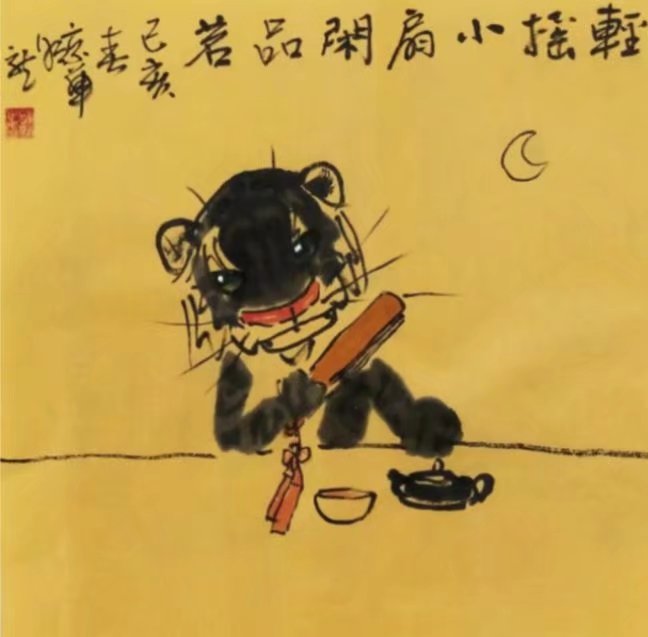 輕搖小扇閑品茗
己亥
春
龍